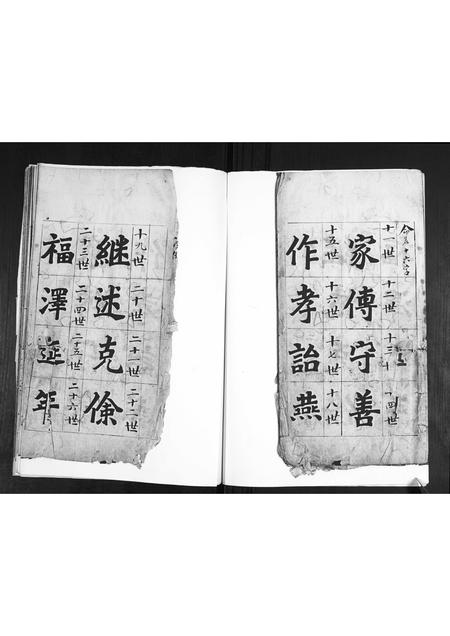 十六字
十一世 十二世 十三 十四世
家傳守善
十五世 十六世 十七世 十八世
作孝詒燕
十九世 二十世 二十一世 二十二世
継述克
二十三世 二十四世 二十五世 二十六世
福澤延年